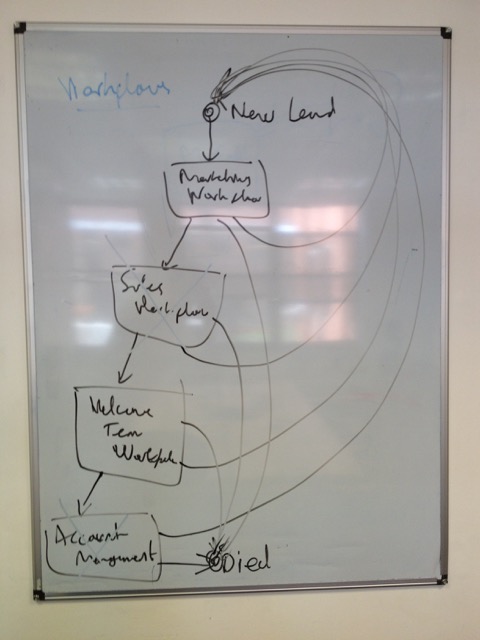 Workflows
New Lead
Marketing
Workflow
Sales
Workflow
Welcome
Team
Workflow
Account
Management
Died